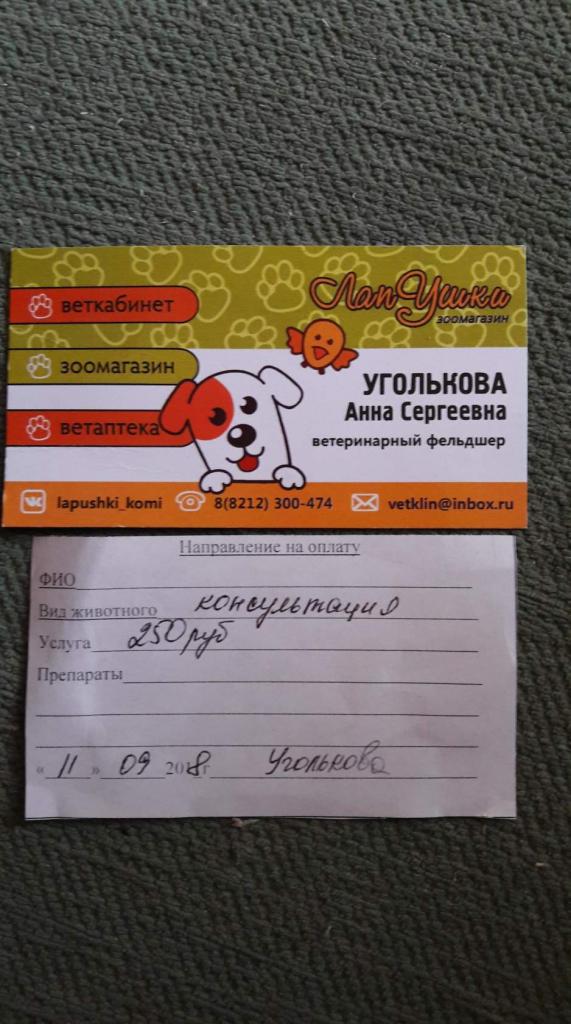 веткабинет
ЛапУшки
зоомагазин
зоомагазин
УГОЛЬКОВА
Анна Сергеевна
ветаптека
ветеринарный фельдшер
lapushki_komi 8(8212) 300-474 vetklin@inbox.ru
Направление на оплату
ФИО
Вид животного консультация
Услуга 250 руб
Препараты
« 11 » 09 2018г Уголькова